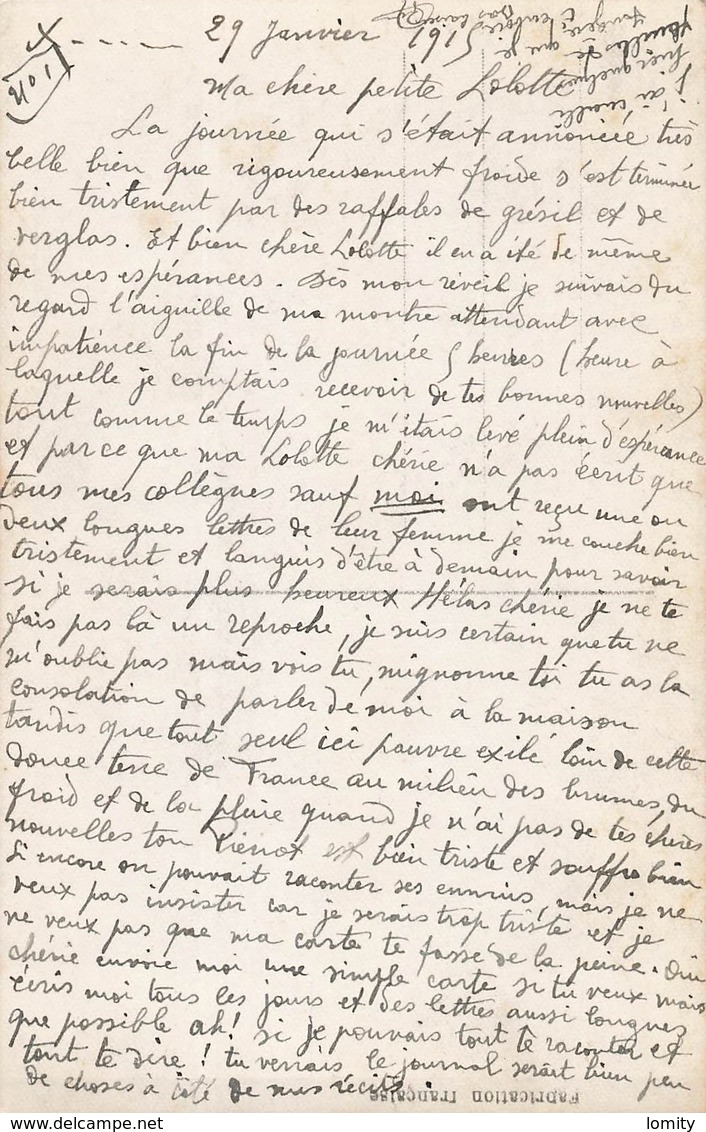 X - - - - - 29 Janvier 1915
2101
Ma chère petite Lolotte
La journée qui s'était annoncée très
belle bien que rigoureusement froide s'est terminée
bien tristement par des raffales de grésil et de
verglas. Et bien chère Lolotte il en a été de même
de mes espérances. Dès mon réveil je suivais du
regard l'aiguille de ma montre attendant avec
impatience la fin de la journée 5 heures (heure à
laquelle je comptais recevoir de tes bonnes nouvelles)
tout comme le temps je m'étais levé plein d'espérance
et parce que ma Lolotte chérie n'a pas écrit que
tous mes collègues sauf moi ont reçu une ou
deux longues lettres de leur femme je me couche bien
tristement et languis d'être à demain pour savoir
si je serais plus heureux Hélas chérie je ne te
fais pas là un reproche, je suis certain que tu ne
m'oublie pas mais vois tu, mignonne toi tu as la
consolation de parler de moi à la maison
tandis que tout seul ici pauvre exilé loin de cette
douce terre de France au milieu des brumes, du
froid et de la pluie quand je n'ai pas de tes chères
nouvelles ton Pienot est bien triste et souffre bien
Si encore on pouvait raconter ses ennuis, mais je ne
veux pas insister car je serais trop triste et je
ne veux pas que ma carte te fasse de la peine. Oui
chérie envoie moi une simple carte si tu veux mais
écris moi tous les jours et des lettres aussi longues
que possible ah! si je pouvais tout te raconter et
tout te dire! tu verrais le journal serait bien peu
de choses à côté de mes récits.
J'ai cueilli
hier quelques
feuilles de
que je
Fabrication Française
lomity